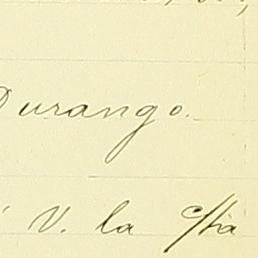 Durango.
V. la c/ta